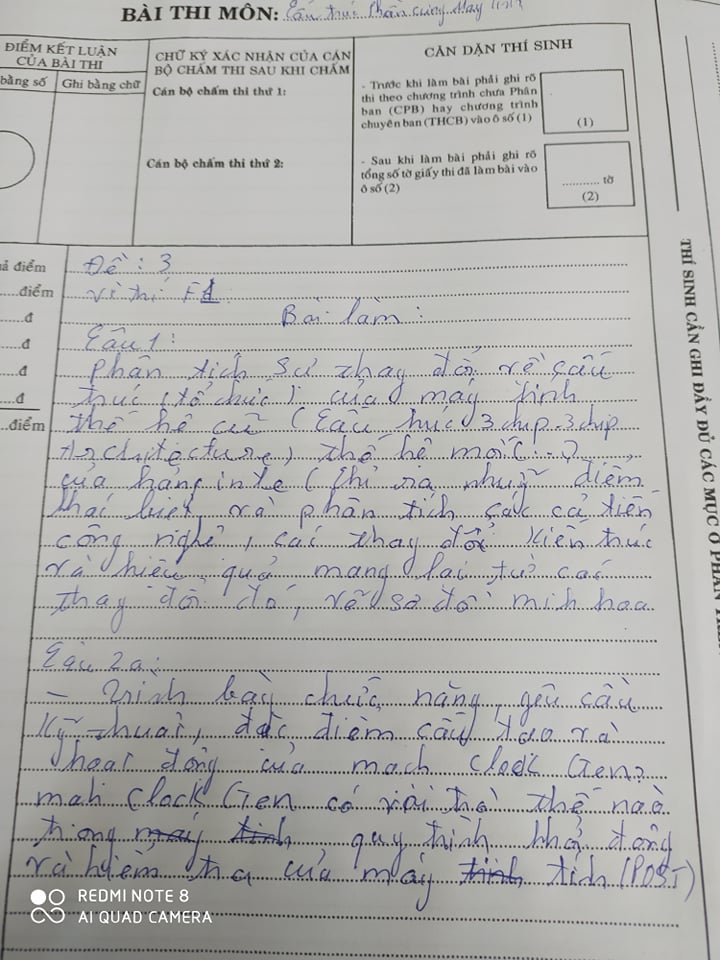 BÀI THI MÔN: Cấu trúc Phần cứng Máy
ĐIỂM KẾT LUẬN
CỦA BÀI THI
bằng số
Ghi bằng chữ
CHỮ KÝ XÁC NHẬN CỦA CÁN
BỘ CHẤM THI SAU KHI CHẤM
Cán bộ chấm thi thứ 1:
Cán bộ chấm thi thứ 2:
CĂN DẶN THÍ SINH
- Trước khi làm bài phải ghi rõ
thi theo chương trình chưa Phân
ban (CPB) hay chương trình
chuyên ban (THCB) vào ô số (1)
(1)
- Sau khi làm bài phải ghi rõ
tổng số tờ giấy thi đã làm bài vào
ô số (2)
............ tờ
(2)
ả điểm
.....điểm
......đ
......đ
......đ
......đ
...điểm
Đề : 3
Vị thí F1
Bài làm :
Câu 1 :
Phân tích sự thay đổi về cấu
trúc (tổ chức) của máy tính
thế hệ cũ (Cấu trúc 3 chip - 3 chip
Architecture) thế hệ mới (...)
của hãng inte (Chỉ ra những điểm
khác biệt và phân tích các cả tiến
công nghệ, các thay đổi kiến trúc
và hiệu quả mang lại từ các
thay đổi đó, vẽ sơ đồ minh hoạ
Câu 2a:
- Trình bày chức năng, yêu cầu
kỹ thuật, đặc điểm cấu tạo và
hoạt động của mạch Clock Gen?
mạh Clock Gen có vài trò thế nào
trong máy tính quy trình khở động
và kiểm tra của máy trình tính (POST)
THÍ SINH CẦN GHI ĐẦY ĐỦ CÁC MỤC Ở PHẦN
REDMI NOTE 8
AI QUAD CAMERA